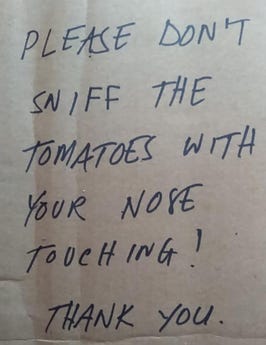 PLEASE DON'T
SNIFF THE
TOMATOES WITH
YOUR NOSE
TOUCHING!
THANK YOU.